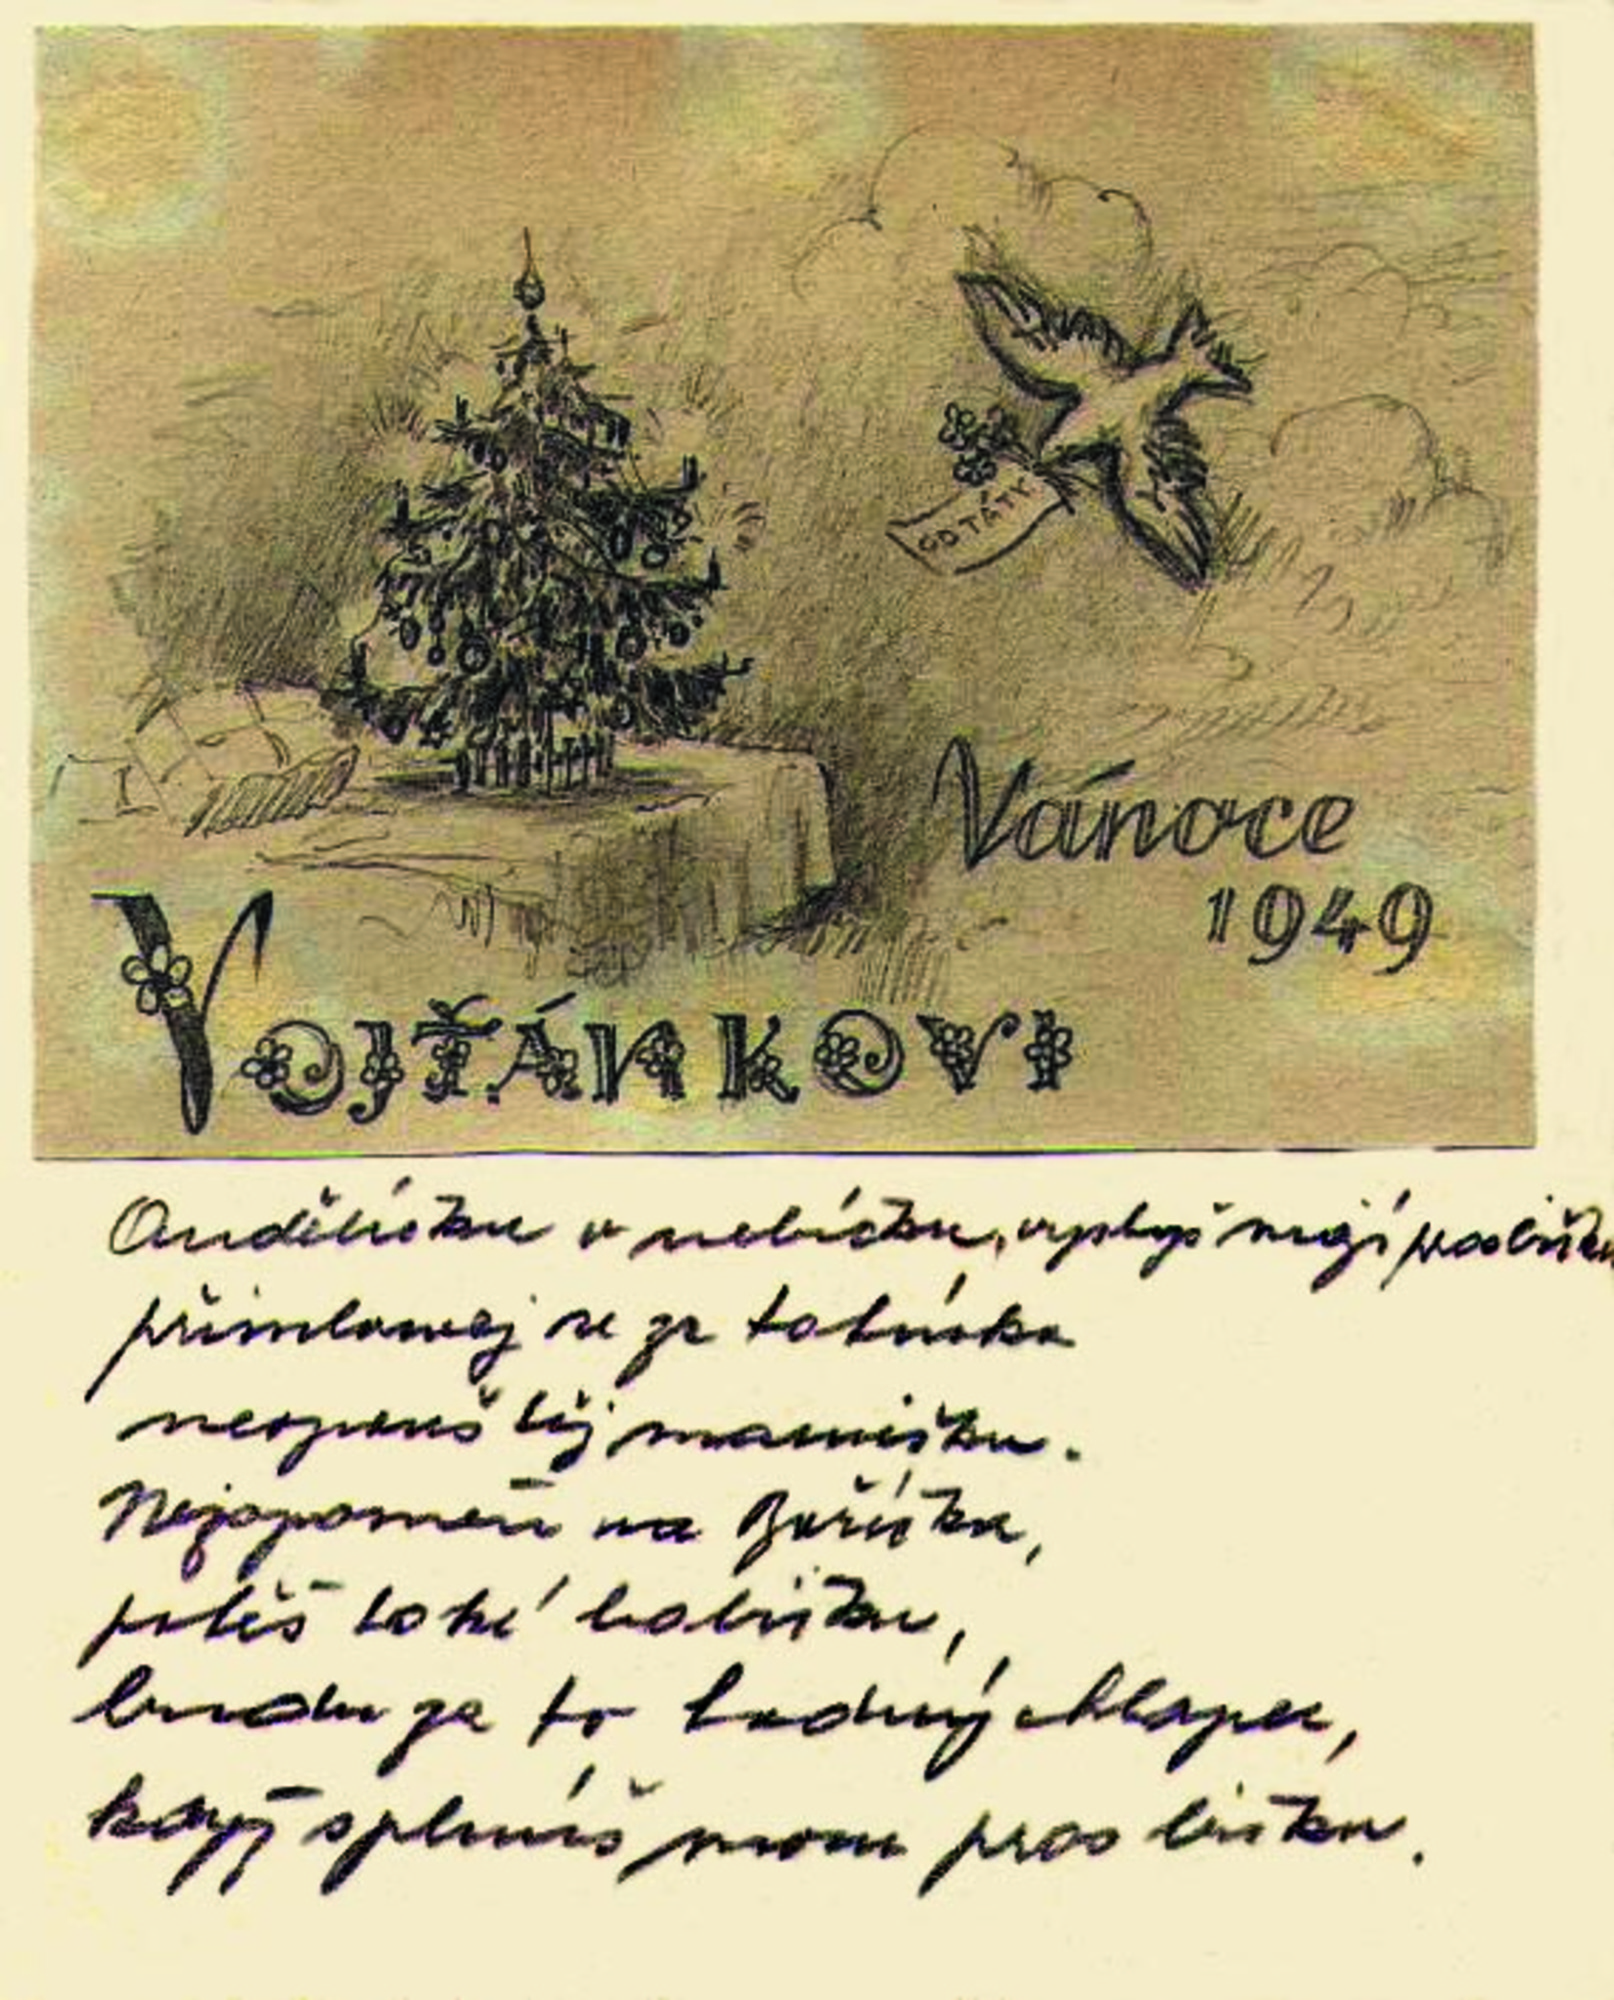 OD TÁTY
Vánoce
1949
VOJŤÁNKOVI
Andělíčku v nebíčku, vyslyš mojí prosbičku
přimlouvej se za tatínka
neopouštěj mamičku.
Nezapomeň na Boříčka,
potěš také babičku,
budu za to hodný chlapec,
když splníš mou prosbičku.